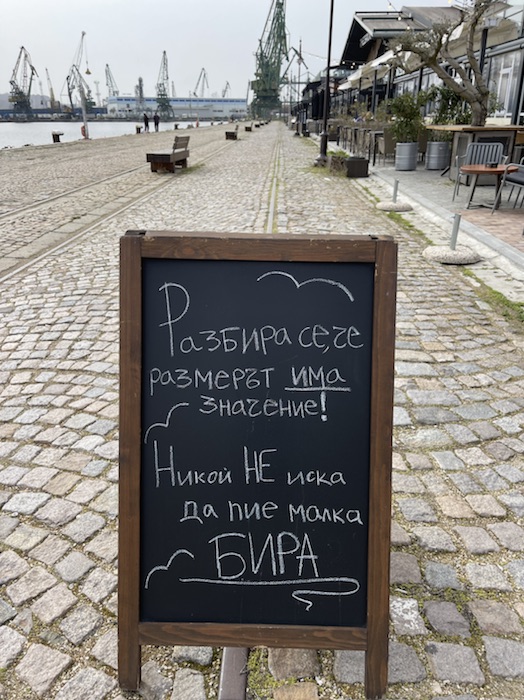 Разбира се, че
размерът има
значение!
Никой НЕ иска
да пие малка
БИРА